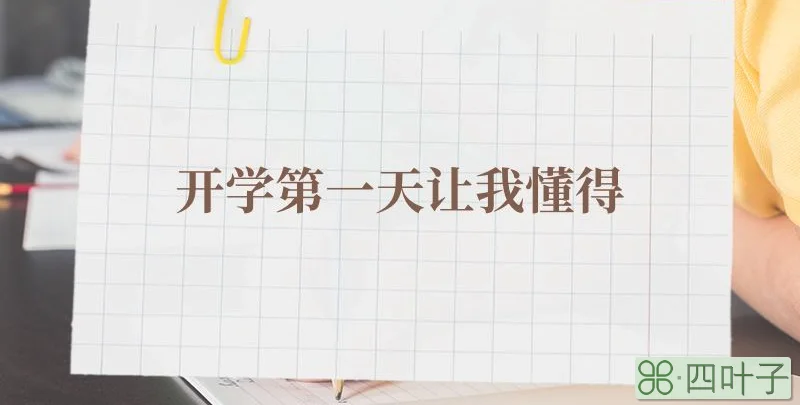 开学第一天让我懂得
四叶子